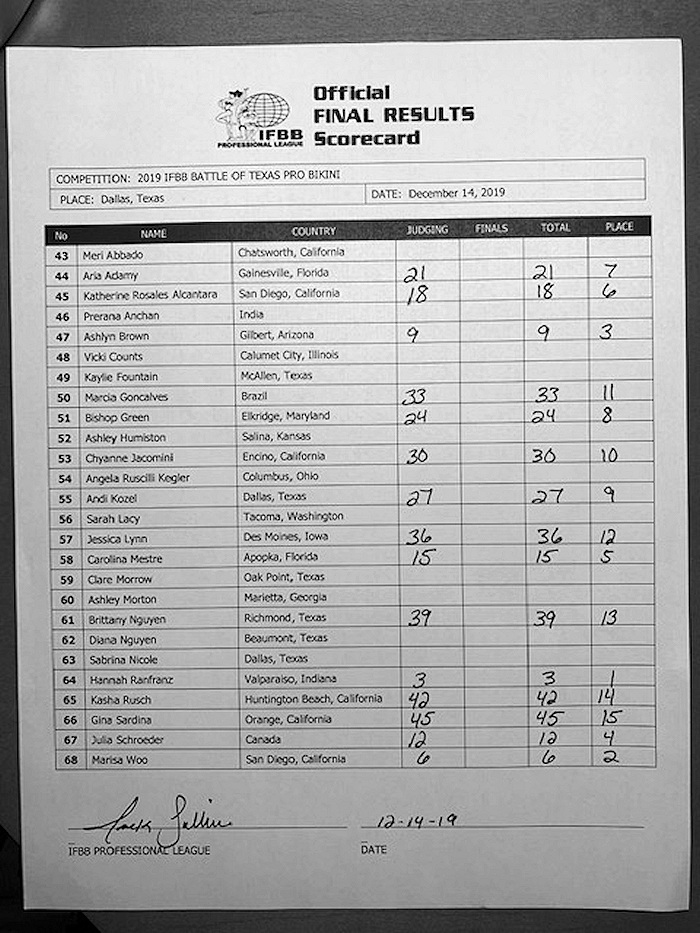 Official
FINAL RESULTS
Scorecard
IFBB
PROFESSIONAL LEAGUE
COMPETITION: 2019 IFBB BATTLE OF TEXAS PRO BIKINI
PLACE: Dallas, Texas DATE: December 14, 2019
No NAME COUNTRY JUDGING FINALS TOTAL PLACE
43 Meri Abbado Chatsworth, California
44 Aria Adamy Gainesville, Florida 21 21 7
45 Katherine Rosales Alcantara San Diego, California 18 18 6
46 Prerana Anchan India
47 Ashlyn Brown Gilbert, Arizona 9 9 3
48 Vicki Counts Calumet City, Illinois
49 Kaylie Fountain McAllen, Texas
50 Marcia Goncalves Brazil 33 33 11
51 Bishop Green Elkridge, Maryland 24 24 8
52 Ashley Humiston Salina, Kansas
53 Chyanne Jacomini Encino, California 30 30 10
54 Angela Ruscilli Kegler Columbus, Ohio
55 Andi Kozel Dallas, Texas 27 27 9
56 Sarah Lacy Tacoma, Washington
57 Jessica Lynn Des Moines, Iowa 36 36 12
58 Carolina Mestre Apopka, Florida 15 15 5
59 Clare Morrow Oak Point, Texas
60 Ashley Morton Marietta, Georgia
61 Brittany Nguyen Richmond, Texas 39 39 13
62 Diana Nguyen Beaumont, Texas
63 Sabrina Nicole Dallas, Texas
64 Hannah Ranfranz Valparaiso, Indiana 3 3 1
65 Kasha Rusch Huntington Beach, California 42 42 14
66 Gina Sardina Orange, California 45 45 15
67 Julia Schroeder Canada 12 12 4
68 Marisa Woo San Diego, California 6 6 2
12-14-19
IFBB PROFESSIONAL LEAGUE DATE